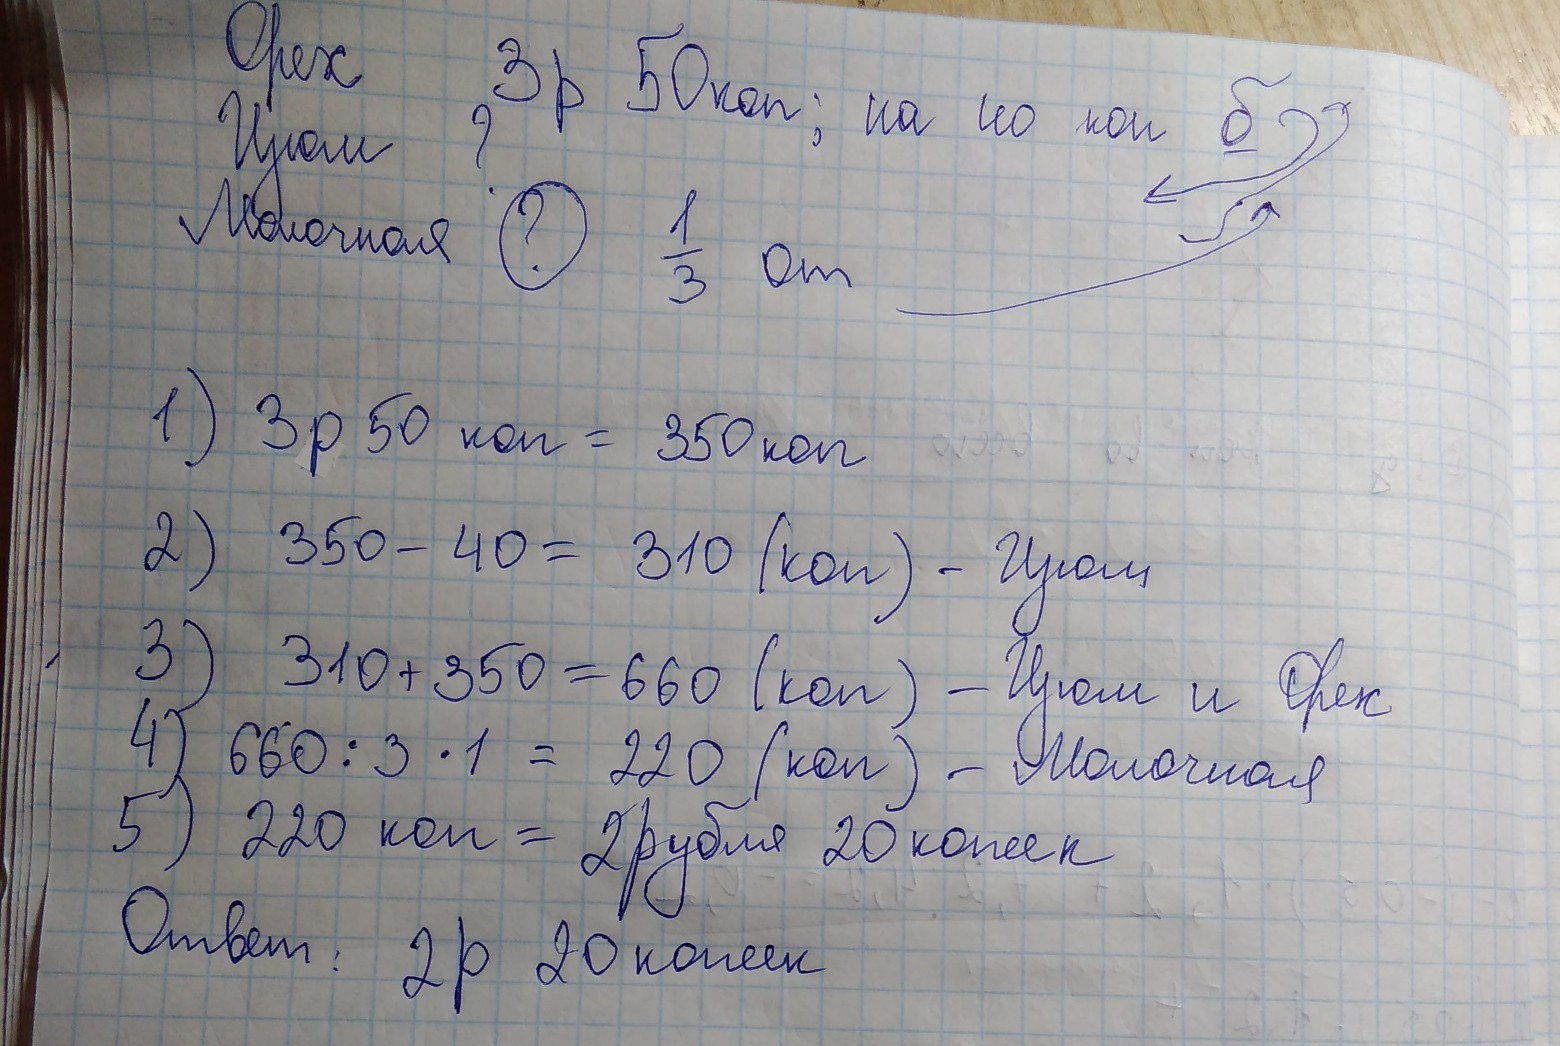 Орех 3р 50коп; на 40 коп б
Изюм ?
Молочная ? 1/3 от
1) 3р 50 коп = 350коп
2) 350 - 40 = 310 (коп) - Изюм
3) 310 + 350 = 660 (коп) - Изюм и Орех
4) 660 : 3 · 1 = 220 (коп) - Молочная
5) 220 коп = 2рубля 20копеек
Ответ: 2р 20копеек